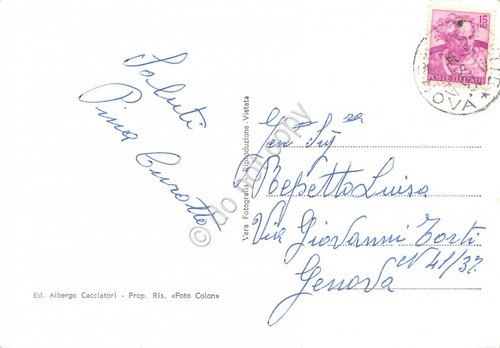 Saluti
Pina Curotto
Ed. Albergo Cacciatori - Prop. Ris. «Foto Colon»
Vera Fotografia - Riproduzione Vietata
Gen. Sig.za
Repetto Luisa
Via Giovanni Torti
N 41/37
Genova
15
LIRE
POSTE ITALIANE
do not copy